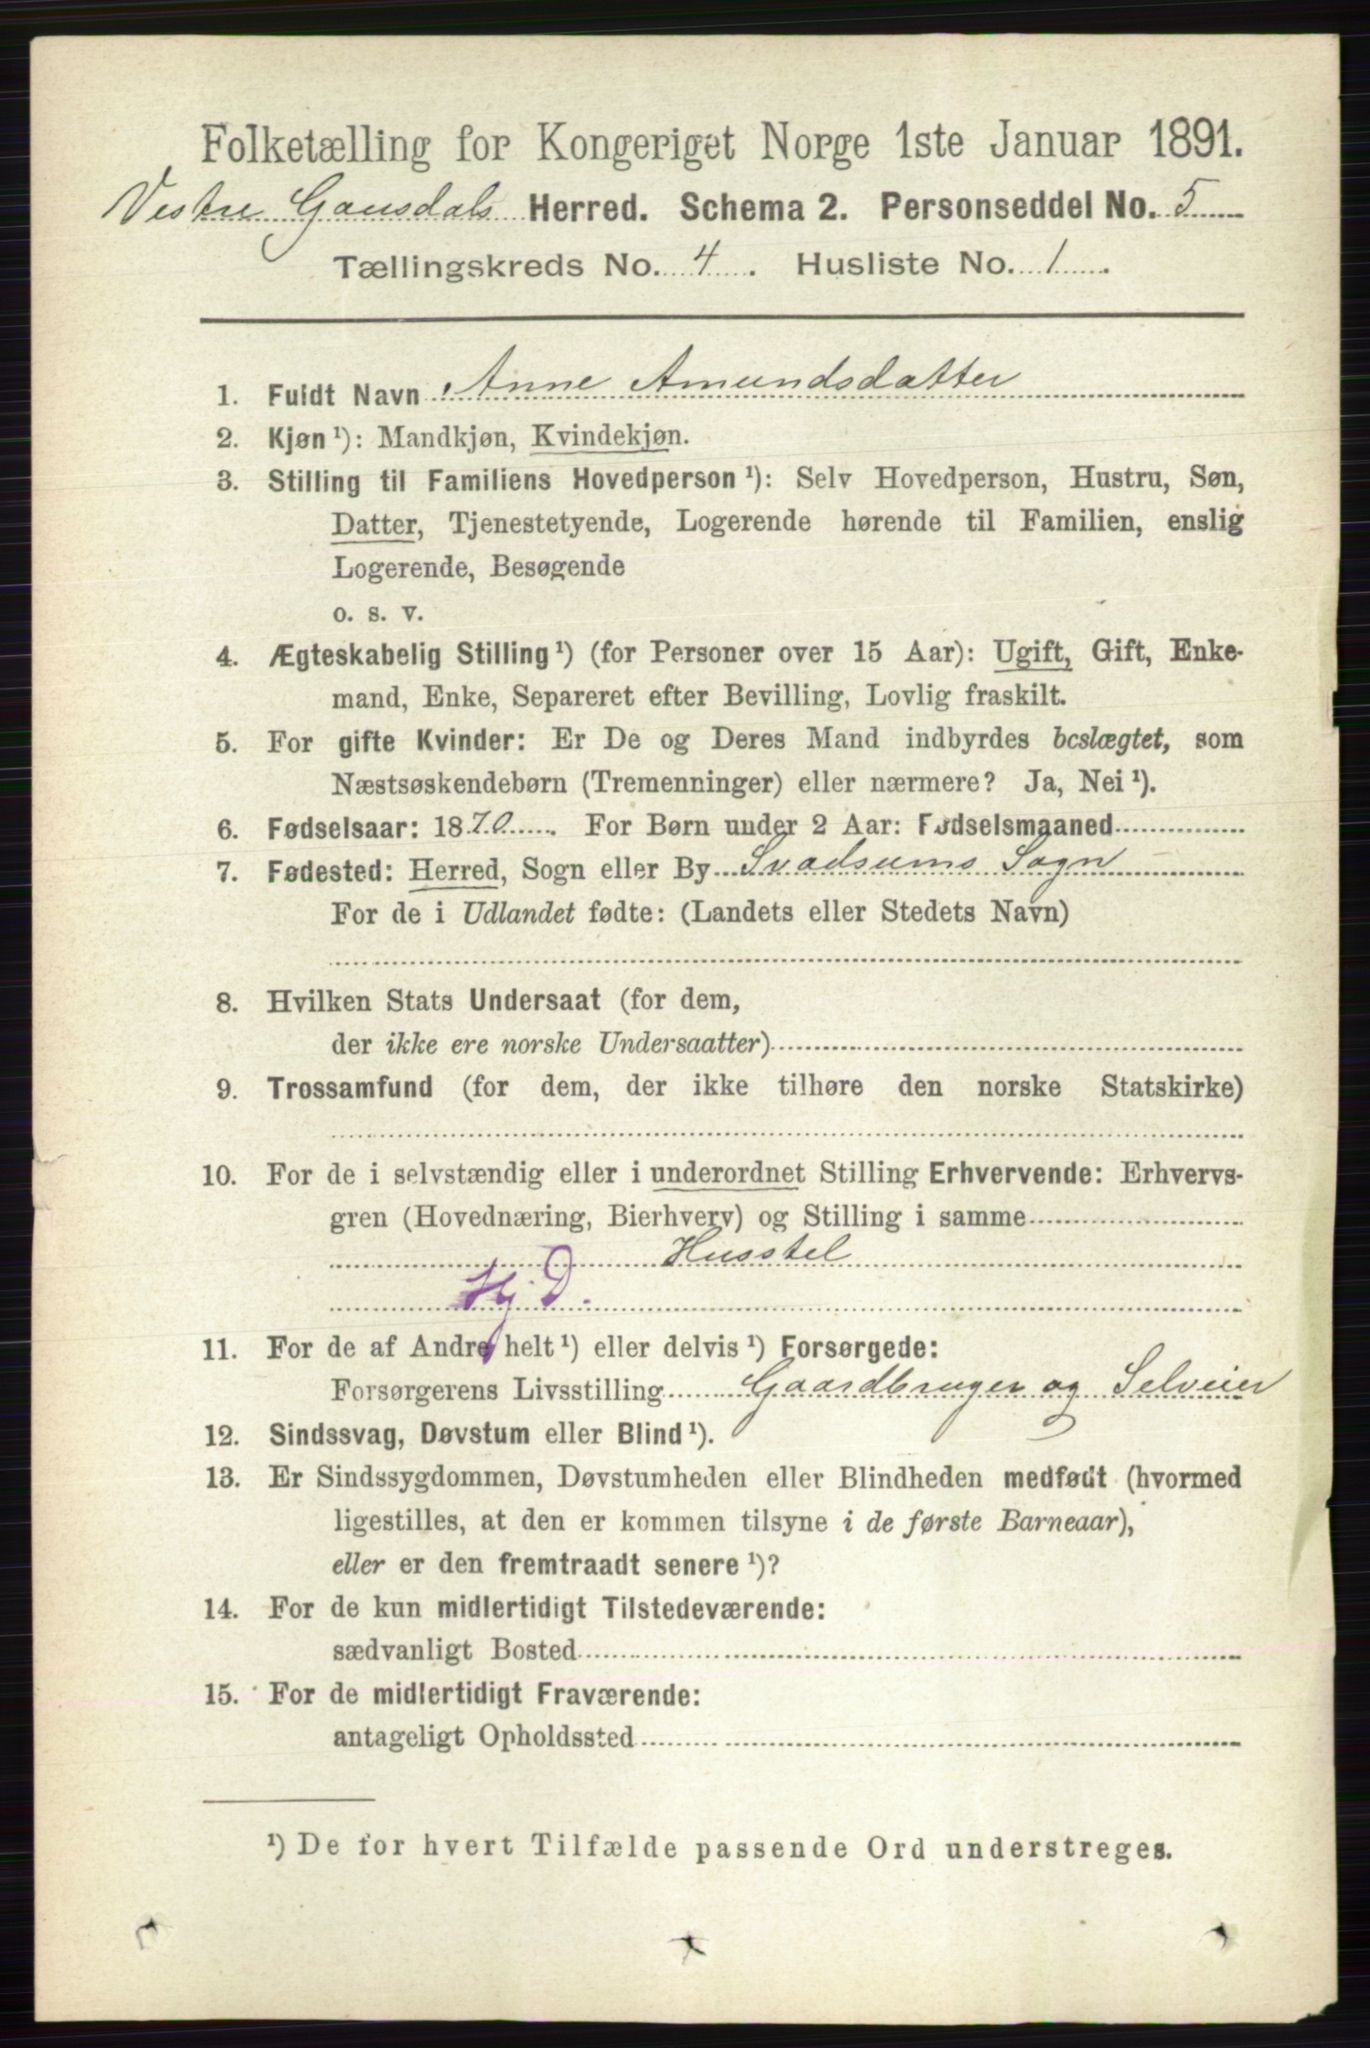 Folketælling for Kongeriget Norge 1ste Januar 1891.
Vestre Gausdals Herred. Schema 2. Personseddel No. 5
Tællingskreds No. 4. Husliste No. 1.
1. Fuldt Navn Anne Amundsdatter
2. Kjøn¹): Mandkjøn, Kvindekjøn.
3. Stilling til Familiens Hovedperson¹): Selv Hovedperson, Hustru, Søn,
Datter, Tjenestetyende, Logerende hørende til Familien, enslig
Logerende, Besøgende
o. s. v.
4. Ægteskabelig Stilling¹) (for Personer over 15 Aar): Ugift, Gift, Enke-
mand, Enke, Separeret efter Bevilling, Lovlig fraskilt.
5. For gifte Kvinder: Er De og Deres Mand indbyrdes beslægtet, som
Næstsøskendebørn (Tremenninger) eller nærmere? Ja, Nei¹).
6. Fødselsaar: 1870. For Børn under 2 Aar: Fødselsmaaned
7. Fødested: Herred, Sogn eller By Svadsums Sogn
For de i Udlandet fødte: (Landets eller Stedets Navn)
8. Hvilken Stats Undersaat (for dem,
der ikke ere norske Undersaatter)
9. Trossamfund (for dem, der ikke tilhøre den norske Statskirke)
10. For de i selvstændig eller i underordnet Stilling Erhvervende: Erhvervs-
gren (Hovednæring, Bierhverv) og Stilling i samme
Husstel
Hj. D.
11. For de af Andre helt¹) eller delvis¹) Forsørgede:
Forsørgerens Livsstilling Gaardbruger og Selveier
12. Sindssvag, Døvstum eller Blind¹).
13. Er Sindssygdommen, Døvstumheden eller Blindheden medfødt (hvormed
ligestilles, at den er kommen tilsyne i de første Barneaar),
eller er den fremtraadt senere¹)?
14. For de kun midlertidigt Tilstedeværende:
sædvanligt Bosted
15. For de midlertidigt Fraværende:
antageligt Opholdssted
¹) De for hvert Tilfælde passende Ord understreges.